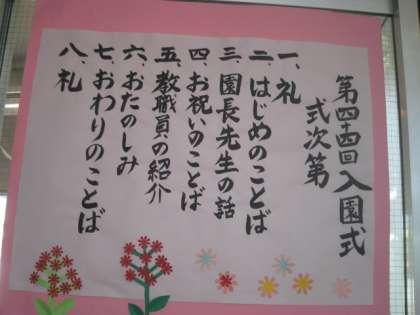 第四十四回入園式
式次第
一、礼
二、はじめのことば
三、園長先生の話
四、お祝いのことば
五、教職員の紹介
六、おたのしみ
七、おわりのことば
八、礼